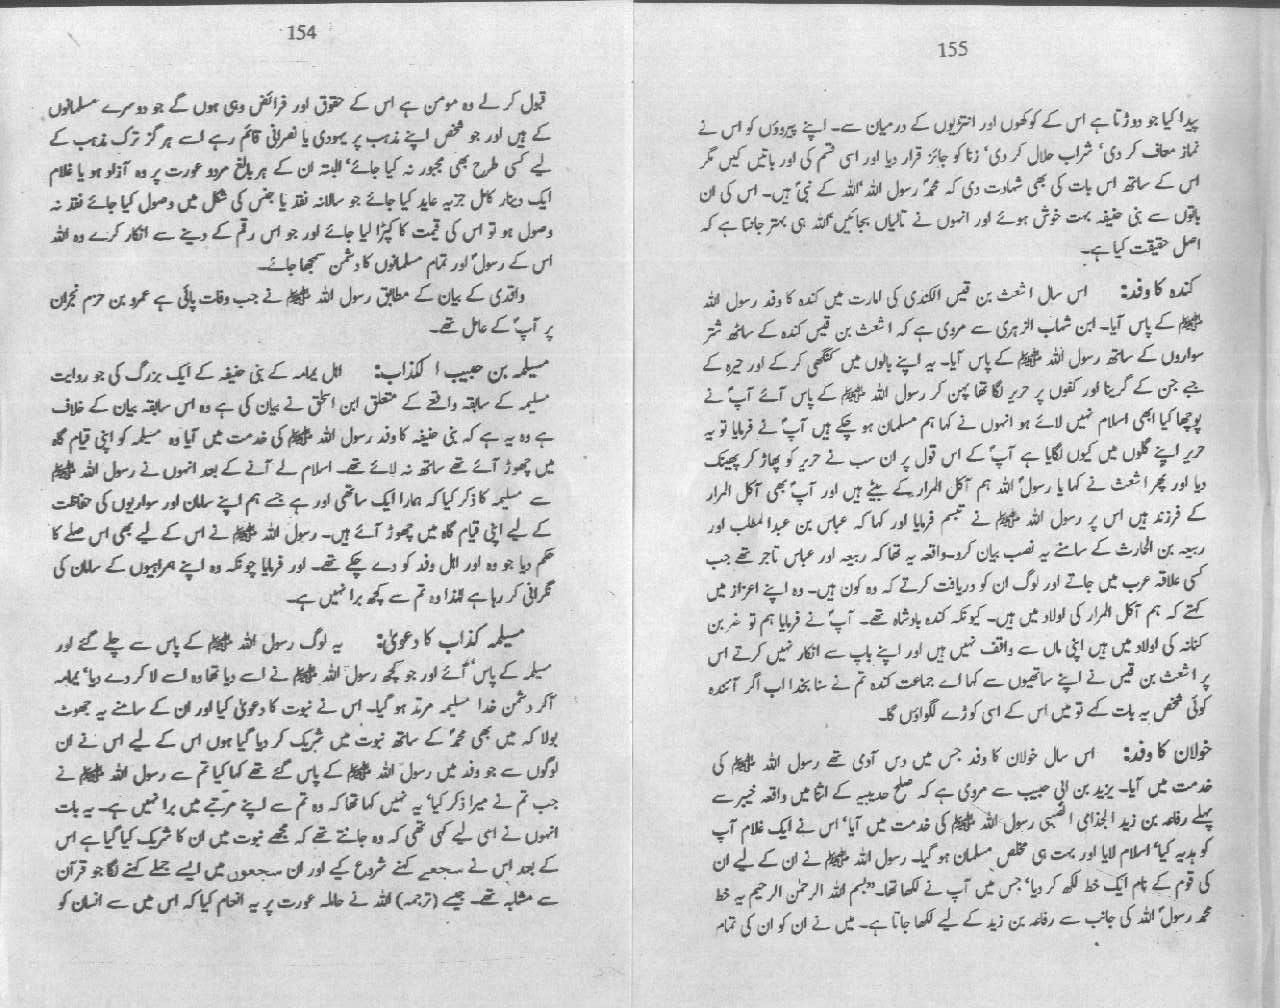 154
قبول کر لے وہ مومن ہے اس کے حقوق اور فرائض وہی ہوں گے جو دوسرے مسلمانوں
کے ہیں اور جو شخص اپنے مذہب پر یہودی یا نصرانی قائم رہے اسے ہرگز ترک مذہب کے
لیے کسی طرح بھی مجبور نہ کیا جائے‘ البتہ ان کے ہر بالغ مرد و عورت پر وہ آزاد ہو یا غلام
ایک دینار کامل جزیہ عاید کیا جائے جو سالانہ نقد یا جنس کی شکل میں وصول کیا جائے نقد نہ
وصول ہو تو اس کی قیمت کا کپڑا لیا جائے اور جو اس رقم کے دینے سے انکار کرے وہ اللہ
اس کے رسولؐ اور تمام مسلمانوں کا دشمن سمجھا جائے۔
واقدی کے بیان کے مطابق رسول اللہ ﷺ نے جب وفات پائی ہے عمرو بن حزم نجران
پر آپؐ کے عامل تھے۔
مسیلمہ بن حبیب الکذاب: اہل یمامہ کے بنی حنیفہ کے ایک بزرگ کی جو روایت
مسیلمہ کے سابقہ واقعے کے متعلق ابن اسحٰق نے بیان کی ہے وہ اس سابقہ بیان کے خلاف
ہے وہ یہ ہے کہ بنی حنیفہ کا وفد رسول اللہ ﷺ کی خدمت میں آیا وہ مسیلمہ کو اپنی قیام گاہ
میں چھوڑ آئے تھے ساتھ نہ لائے تھے۔ اسلام لے آنے کے بعد انہوں نے رسول اللہ ﷺ
سے مسیلمہ کا ذکر کیا کہ ہمارا ایک ساتھی اور ہے جسے ہم اپنے سامان اور سواریوں کی حفاظت
کے لیے اپنی قیام گاہ میں چھوڑ آئے ہیں۔ رسول اللہ ﷺ نے اس کے لیے بھی اس صلے کا
حکم دیا جو وہ اور اہل وفد کو دے چکے تھے۔ اور فرمایا چونکہ وہ اپنے ہمراہیوں کے سامان کی
نگرانی کر رہا ہے لہٰذا وہ تم سے کچھ برا نہیں ہے۔
مسیلمہ کذاب کا دعویٰ: یہ لوگ رسول اللہ ﷺ کے پاس سے چلے گئے اور
مسیلمہ کے پاس‘ آئے اور جو کچھ رسول اللہ ﷺ نے اسے دیا تھا وہ اسے لا کر دے دیا‘ یمامہ
آکر دشمن خدا مسیلمہ مرتد ہو گیا۔ اس نے نبوت کا دعویٰ کیا اور ان کے سامنے یہ جھوٹ
بولا کہ میں بھی محمدؐ کے ساتھ نبوت میں شریک کر دیا گیا ہوں اس کے لیے اس نے ان
لوگوں سے جو وفد میں رسول اللہ ﷺ کے پاس گئے تھے کہا کیا تم سے رسول اللہ ﷺ نے
جب تم نے میرا ذکر کیا‘ یہ نہیں کہا تھا کہ وہ تم سے اپنے مرتبے میں برا نہیں ہے۔ یہ بات
انہوں نے اسی لیے کہی تھی کہ وہ جانتے تھے کہ مجھے نبوت میں ان کا شریک کیا گیا ہے اس
کے بعد اس نے سجعے کہنے شروع کیے اور ان سجعوں میں ایسے جملے کہنے لگا جو قرآن
سے مشابہ تھے۔ جیسے (ترجمہ) اللہ نے حاملہ عورت پر یہ انعام کیا کہ اس میں سے انسان کو
155
پیدا کیا جو دوڑتا ہے اس کے کوکھوں اور انتڑیوں کے درمیان سے۔ اپنے پیروؤں کو اس نے
نماز معاف کر دی‘ شراب حلال کر دی‘ زنا کو جائز قرار دیا اور اسی قسم کی اور باتیں کیں مگر
اس کے ساتھ اس بات کی بھی شہادت دی کہ محمدؐ رسول اللہ‘ اللہ کے نبیؐ ہیں۔ اس کی ان
باتوں سے بنی حنیفہ بہت خوش ہوئے اور انہوں نے تالیاں بجائیں‘ اللہ ہی بہتر جانتا ہے کہ
اصل حقیقت کیا ہے۔
کندہ کا وفد: اس سال اشعث بن قیس الکندی کی امارت میں کندہ کا وفد رسول اللہ
ﷺ کے پاس آیا۔ ابن شہاب الزہری سے مروی ہے کہ اشعث بن قیس کندہ کے ساتھ شتر
سواروں کے ساتھ رسول اللہ ﷺ کے پاس آیا۔ یہ اپنے بالوں میں کنگھی کر کے اور حیرہ کے
جبے جن کے گریبا اور کفوں پر حریر لگا تھا پہن کر رسول اللہ ﷺ کے پاس آئے آپؐ نے
پوچھا کیا ابھی اسلام نہیں لائے ہو انہوں نے کہا ہم مسلمان ہو چکے ہیں آپؐ نے فرمایا تو یہ
حریر اپنے گلوں میں کیوں لگایا ہے آپؐ کے اس قول پر ان سب نے حریر کو پھاڑ کر پھینک
دیا اور پھر اشعث نے کہا یا رسولؐ اللہ ہم آکل المرار کے بیٹے ہیں اور آپؐ بھی آکل المرار
کے فرزند ہیں اس پر رسول اللہ ﷺ نے تبسم فرمایا اور کہا کہ عباس بن عبدالمطلب اور
ربیعہ بن الحارث کے سامنے یہ نصب بیان کرو۔ واقعہ یہ تھا کہ ربیعہ اور عباس تاجر تھے جب
کسی علاقہ عرب میں جاتے اور لوگ ان کو دریافت کرتے کہ وہ کون ہیں۔ وہ اپنے اعزاز میں
کہتے کہ ہم آکل المرار کی اولاد میں ہیں۔ کیونکہ کندہ بادشاہ تھے۔ آپؐ نے فرمایا ہم تو نضر بن
کنانہ کی اولاد میں ہیں اپنی ماں سے واقف نہیں ہیں اور اپنے باپ سے انکار نہیں کرتے اس
پر اشعث بن قیس نے اپنے ساتھیوں سے کہا اے جماعت کندہ تم نے سنا بخدا اب اگر آئندہ
کوئی شخص یہ بات کہے تو میں اس کے اسی کوڑے لگواؤں گا۔
خولان کا وفد: اس سال خولان کا وفد جس میں دس آدمی تھے رسول اللہ ﷺ کی
خدمت میں آیا۔ یزید بن ابی حبیب سے مروی ہے کہ صلح حدیبیہ کے اثنا میں واقعہ خیبر سے
پہلے رفاعہ بن زید الجذامی الضبیبی رسول اللہ ﷺ کی خدمت میں آیا‘ اس نے ایک غلام آپ
کو ہدیہ کیا‘ اسلام لایا اور بہت ہی مخلص مسلمان ہو گیا۔ رسول اللہ ﷺ نے ان کے لیے ان
کی قوم کے نام ایک خط لکھ کر دیا‘ جس میں آپ نے لکھا تھا۔ ”بسم اللہ الرحمٰن الرحیم یہ خط
محمد رسولؐ اللہ کی جانب سے رفاعہ بن زید کے لیے لکھا جاتا ہے۔ میں نے ان کو ان کی تمام